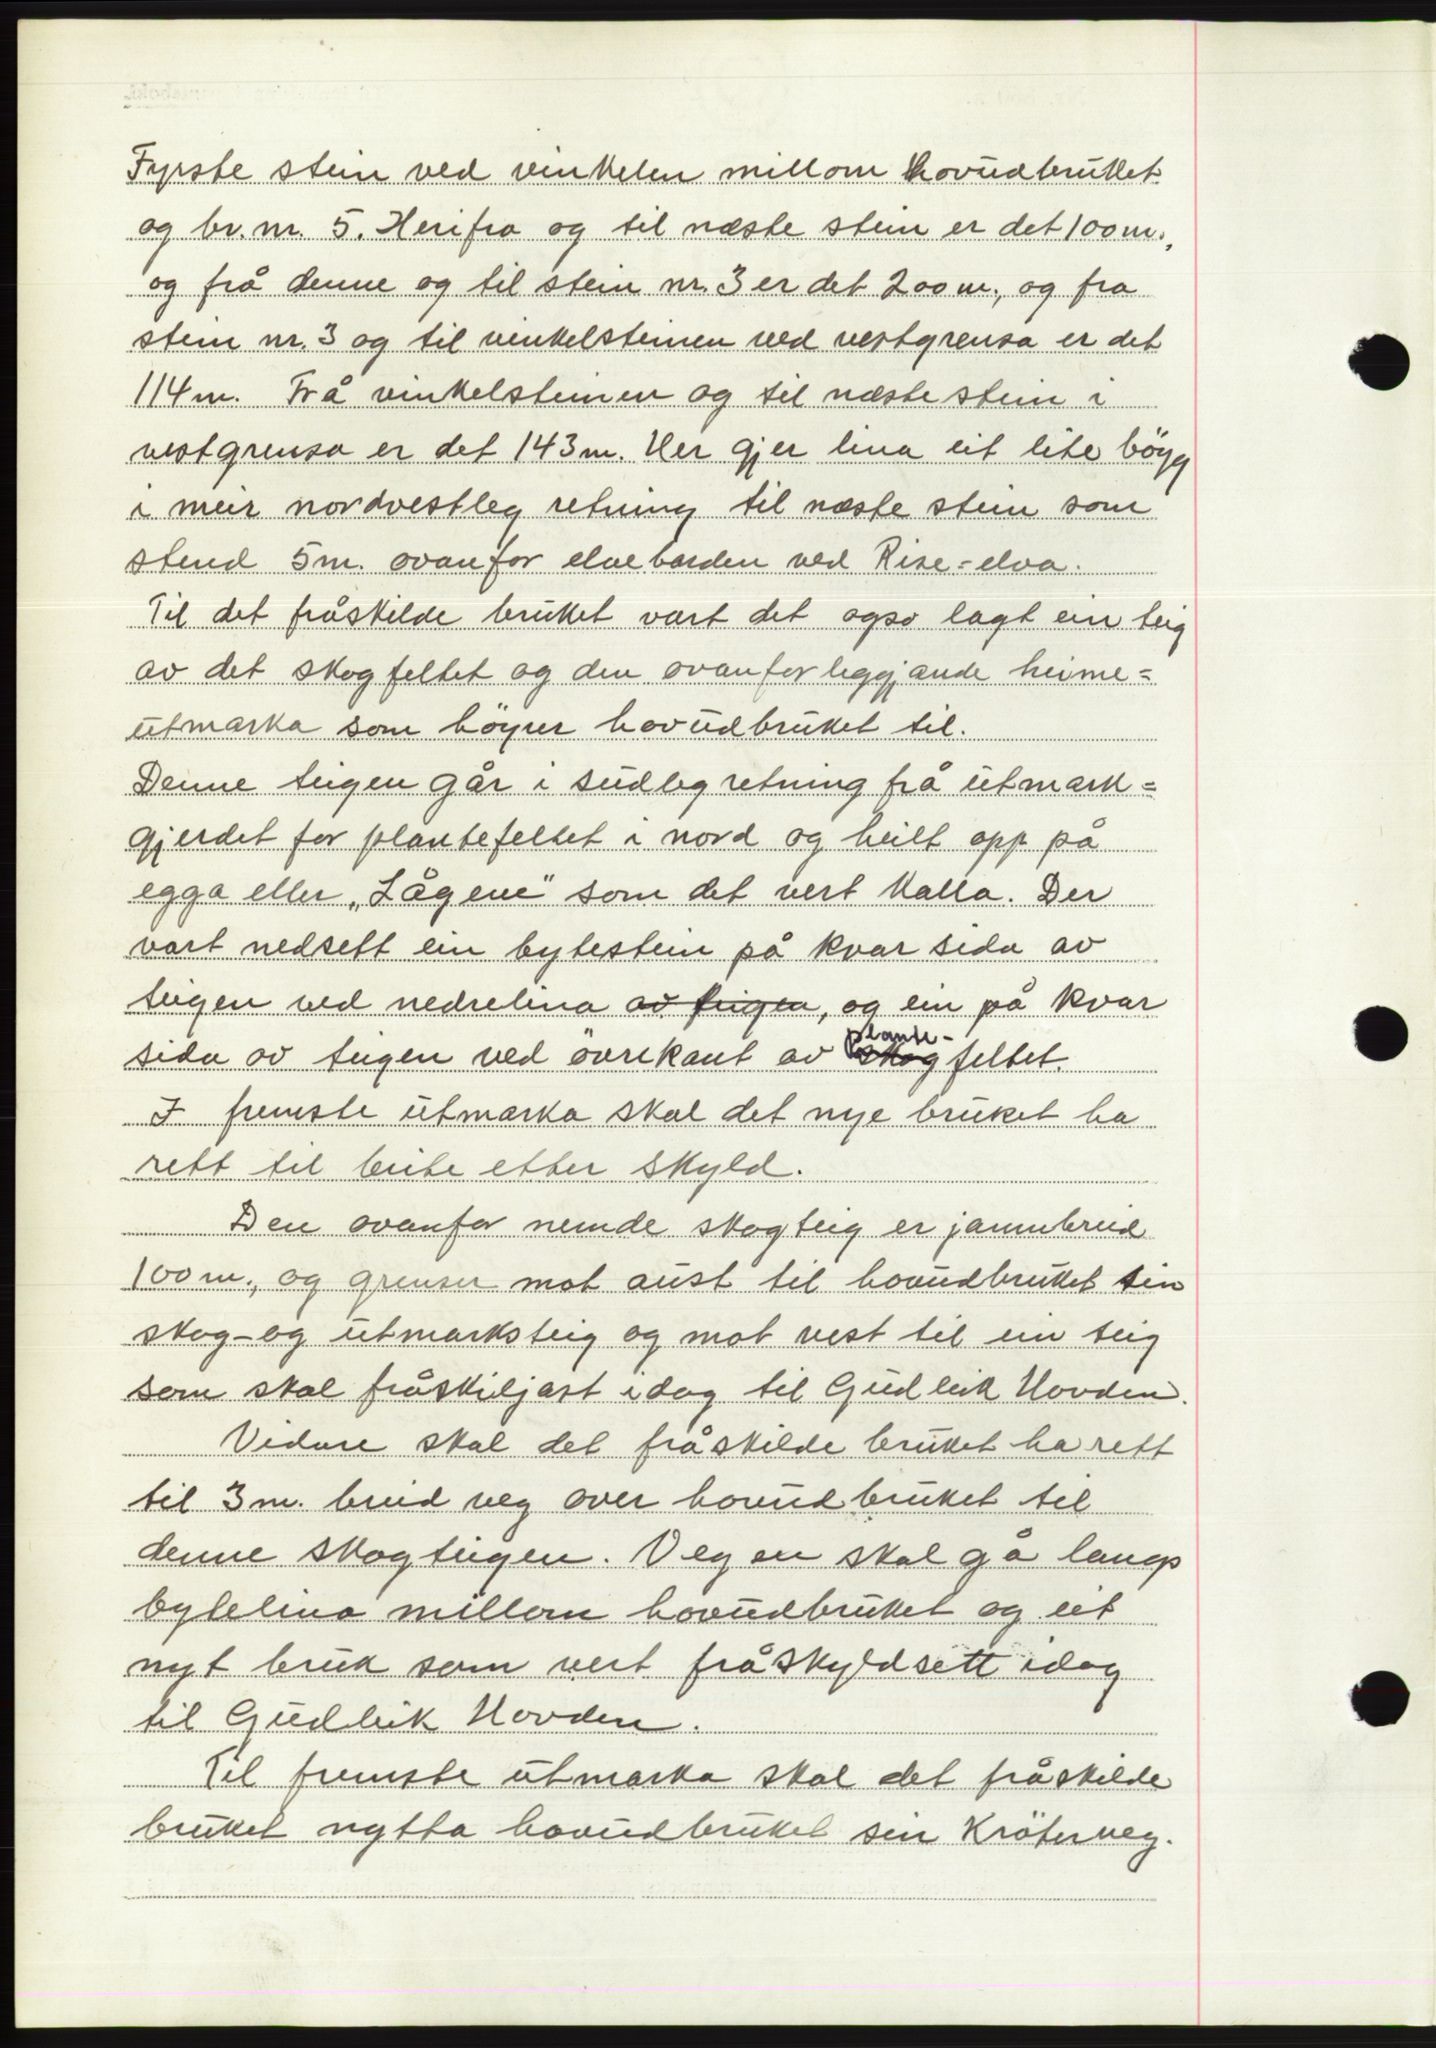 Fyrste stein ved vinkelen millom hovudbruket
og br. nr. 5. Herifra og til næste stein er det 100 m.,
og frå denne og til stein nr. 3 er det 200 m., og fra
stein nr. 3 og til vinkelsteinen ved vestgrensa er det
114 m. Frå vinkelsteinen og til næste stein i
vestgrensa er det 143 m. Her gjer lina eit lite bög
i meir nordvestleg retning til næste stein som
stend 5 m. ovanfor elvebarden ved Rise=elva.
Til det fråskilde bruket vart det ogso lagt ein teig
av det skogfeltet og den ovanforleggjande heime=
utmarka som höyrer hovudbruket til.
Denne teigen går i sudleg retning frå utmark=
gjerdet for plantefeltet i nord og heilt opp på
egga eller „Lågene" som det vert kalla. Der
vart nedsett ein bytestein på kvar sida av
teigen ved nedrelina av teigen, og ein på kvar
sida av teigen ved övrekant av skog plante-feltet.
I fremste utmarka skal det nye bruket ha
rett til beite etter skyld.
Den ovanfor nemde skogteig er jamnbreid
100 m., og grenser mot aust til hovudbruket sin
skog- og utmarksteig og mot vest til ein teig
som skal fråskiljast idag til Gudleik Hovden.
Vidare skal det fråskilde bruket ha rett
til 3 m. breid veg over hovudbruket til
denne skogteigen. Vegen skal gå langs
bytelina millom hovudbruket og eit
nyt bruk som vert fråskyldsett idag
til Gudleik Hovden.
Til fremste utmarka skal det fråskilde
bruket nytta hovudbruket sin Kröterveg.